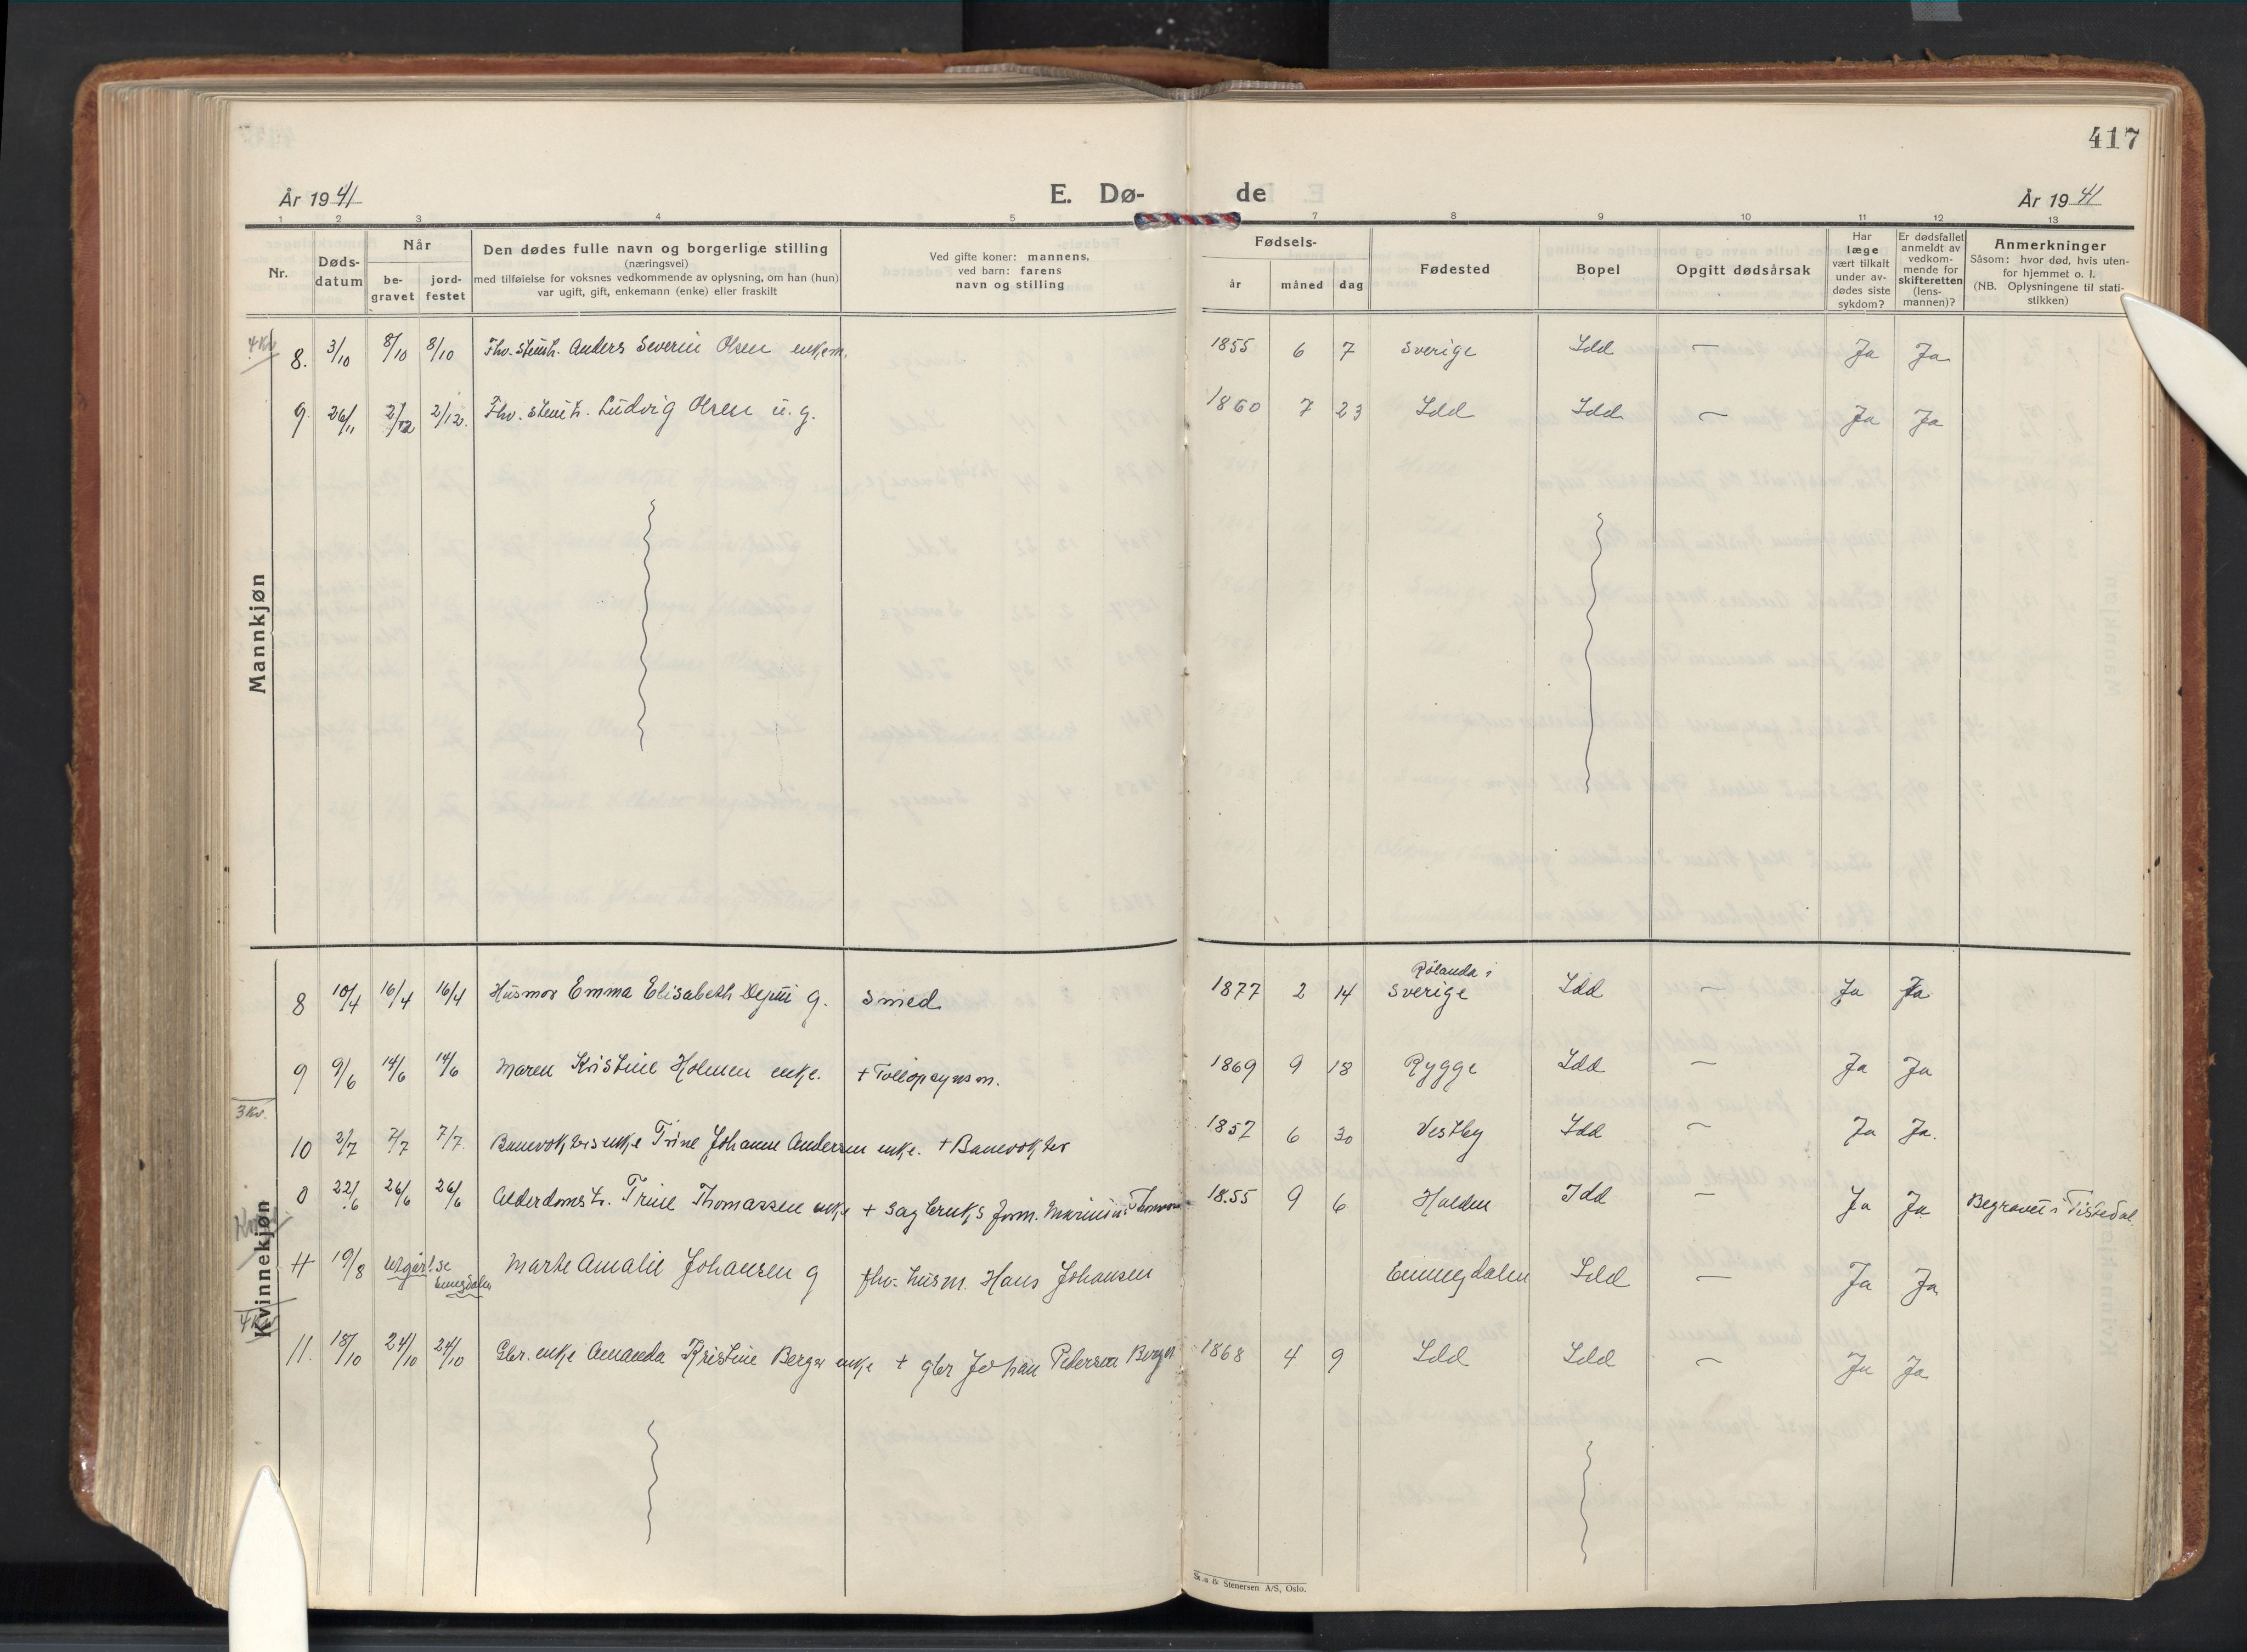 417
År 1941
E. Dø-
de
År 1941
1 2 3 4 5 7 8 9 10 11 12 13
Nr.
Døds-
datum
Når
be-
gravet
jord-
festet
Den dødes fulle navn og borgerlige stilling
(næringsvei)
med tilføielse for voksnes vedkommende av oplysning, om han (hun)
var ugift, gift, enkemann (enke) eller fraskilt
Ved gifte koner: mannens,
ved barn: farens
navn og stilling
Fødsels-
år måned dag
Fødested
Bopel
Opgitt dødsårsak
Har
læge
vært tilkalt
under av-
dødes siste
sykdom?
Er dødsfallet
anmeldt av
vedkom-
mende for
skifteretten
(lens-
mannen)?
Anmerkninger
Såsom: hvor død, hvis uten-
for hjemmet o. l.
(NB. Oplysningene til stati-
stikken)
Mannkjøn
4 Kv
8. 3/10 8/10 8/10 Fhv. stenh. Anders Severin Olsen enkem. 1855 6 7 Sverige Idd — Ja Ja
9. 26/11 2/12 2/12. Fhv. stenh. Ludvig Olsen u. g. 1860 7 23 Idd Idd — Ja Ja
Kvinnekjøn
Rölanda i
8 10/4 16/4 16/4 Husmor Emma Elisabeth g. Smed 1877 2 14 Sverige Idd — Ja Ja
9 9/6 14/6 14/6 Maren Kristine Holmen enke. + Tollopsynsm. 1869 9 18 Rygge Idd — Ja Ja
3 Kv.
10 2/7 7/7 7/7. Banevokters enke Trine Johanne Andersen enke. + Banevokter 1857 6 30 Vestby Idd — Ja Ja.
0 22/6 26/6 26/6 Alderdomstr. Trine Thomassen enke + sagbruks form. Marinius Thomassen 1855 9 6 Halden Idd — Ja Ja Begravet i Tistedal
11 19/8 utgår! se Marte Amalie Johansen g fhv. husm. Hans Johansen Enningdalen Idd — Ja Ja
Enningdalen
4 Kv
11. 18/10 24/10 24/10 Gbr. enke Amanda Kristine Berger enke + gbr Johan Pedersen Berger 1868 4 9 Idd Idd — Ja Ja
& Stenersen A/S, Oslo.